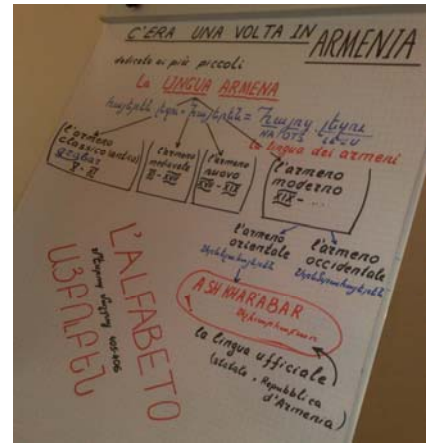 C'ERA UNA VOLTA IN ARMENIA
dedicato ai più piccoli
La LINGUA ARMENA
հայերեն լեզու = հայերեն = հայոց լեզու
HAJOTS LEZU
la lingua dei armeni
l'armeno classico (antico)
grabar
V - XI
l'armeno medievale
XI - XVII
l'armeno nuovo
XVII - XIX
l'armeno moderno
XIX - ...
l'armeno orientale
l'armeno occidentale
ASHKHARABAR
la lingua ufficiale
(statale - Repubblica
d'Armenia)
L'ALFABETO
405-406
ԱՅԲՈՒԲԵՆ